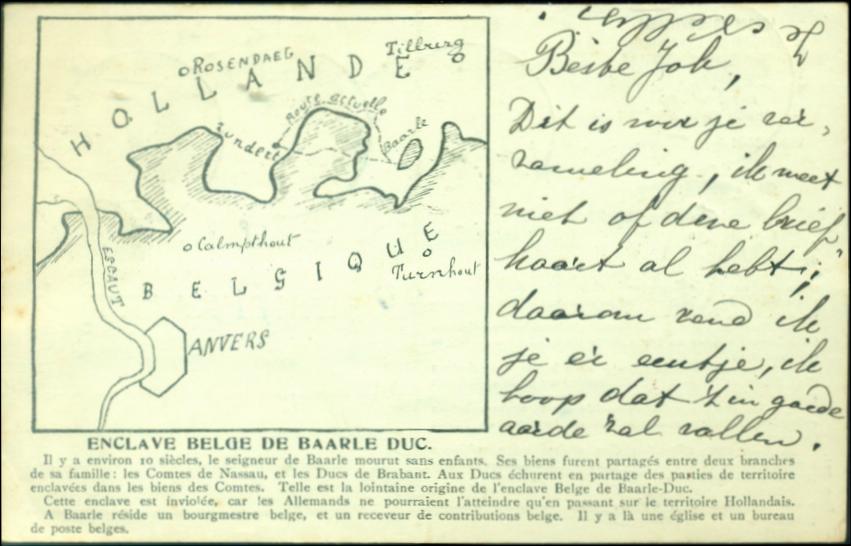 HOLLANDE
ROSENDAEG
Tillburg
Route actuelle
Zundert
Baarle
Calmpthout
BELGIQUE
Turnhout
ESCAUT
ANVERS
ENCLAVE BELGE DE BAARLE DUC.
Il y a environ 10 siècles, le seigneur de Baarle mourut sans enfants. Ses biens furent partagés entre deux branches
de sa famille: les Comtes de Nassau, et les Ducs de Brabant. Aux Ducs échurent en partage des parties de territoire
enclavées dans les biens des Comtes. Telle est la lointaine origine de l'enclave Belge de Baarle-Duc.
Cette enclave est inviolée, car les Allemands ne pourraient l'atteindre qu'en passant sur le territoire Hollandais.
A Baarle réside un bourgmestre belge, et un receveur de contributions belge. Il y a là une église et un bureau
de poste belges.
Beste Joh,
Dit is voor je ver-
zameling, ik weet
niet of deze brief-
kaart al hebt;
daarom zend ik
je er eentje, ik
hoop dat 't in goede
aarde zal vallen.